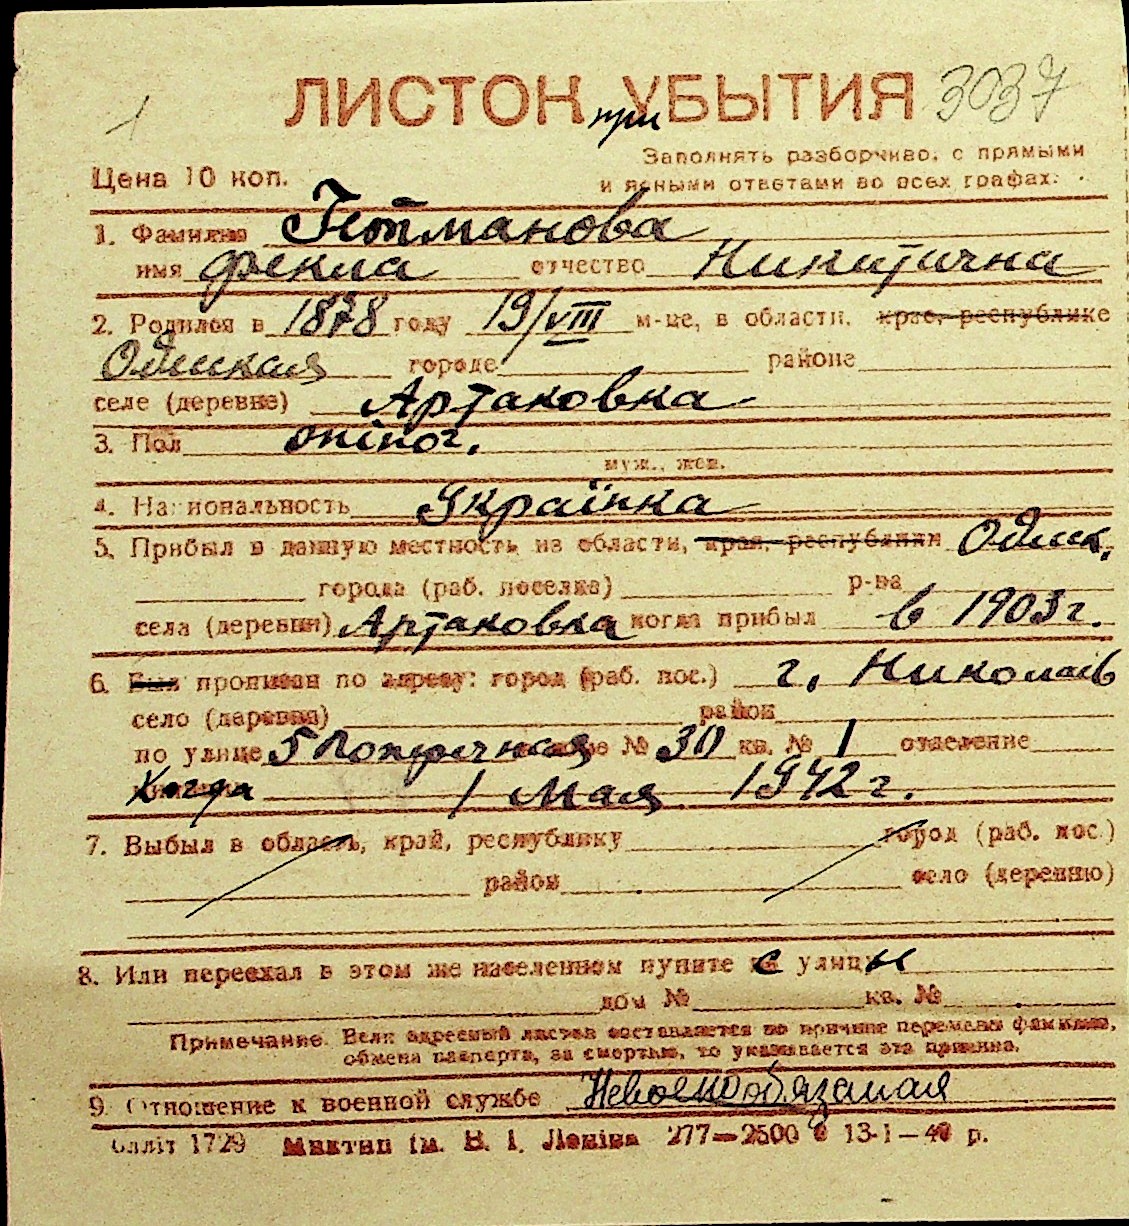 ЛИСТОК при УБЫТИЯ 3037
Заполнять разборчиво, с прямыми
Цена 10 коп. и ясными ответами во всех графах.
1. Фамилия Гетманова
имя Фекла отчество Никитична
2. Родился в 1878 году 19/VIII м-це, в области, крае, республике
Одиская городе районе
селе (деревне) Артаковка
3. Пол жіноч.
муж., жен.
4. Национальность Українка
5. Прибыл в данную местность из области, края, республики Одиск.
города (раб. поселка) р-на
села (деревни) Артаковка когда прибыл в 1903 г.
6. Был прописан по адресу: город (раб. пос.) г. Николаів
село (деревня) район
по улице 5 Поперечная № 30 кв. № 1 отделение
Когда 1 Мая 1942 г.
7. Выбыл в область, край, республику город (раб. пос.)
район село (деревню)
8. Или переехал в этом же населенном пункте с улицы
дом № кв. №
Примечание. Если адресный листок составляется по причине перемены фамилии,
обмена паспорта, за смертью, то указывается эта причина.
9. Отношение к военной службе Невоенообязаная
Облліт 1729 Миктип ім. В. І. Леніна 277—2500 13-I—40 р.